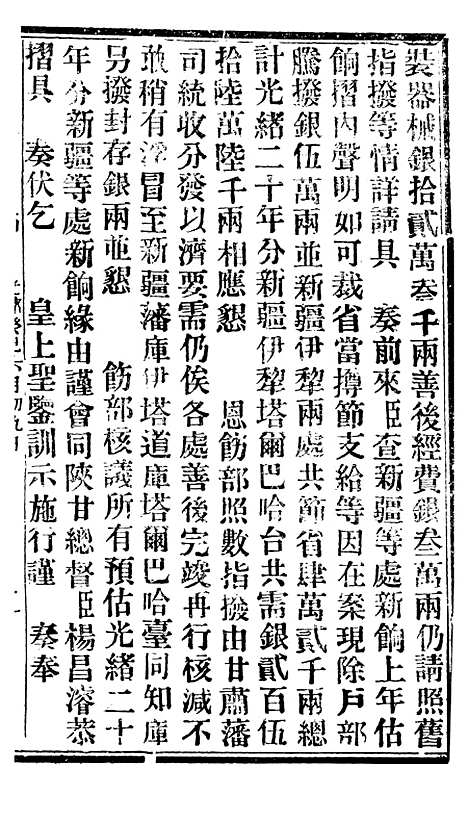 裝器械銀拾貳萬叁千兩善後經費銀叁萬兩仍請照舊
指撥等情詳請具　奏前來臣查新疆等處新餉上年估
餉摺內聲明如可裁省當撙節支給等因在案現除戶部
騰撥銀伍萬兩並新疆伊犂兩處共節省肆萬貳千兩總
計光緒二十年分新疆伊犂塔爾巴哈台共需銀貳百伍
拾陸萬陸千兩相應懇　恩飭部照數指撥由甘肅藩
司統收分發以濟要需仍俟各處善後完竣再行核減不
敢稍有浮冒至新疆藩庫伊塔道庫塔爾巴哈臺同知庫
另撥封存銀兩並懇　飭部核議所有預估光緒二十
年分新疆等處新餉緣由謹會同陝甘總督臣楊昌濬恭
摺具　奏伏乞　皇上聖鑒訓示施行謹　奏奉